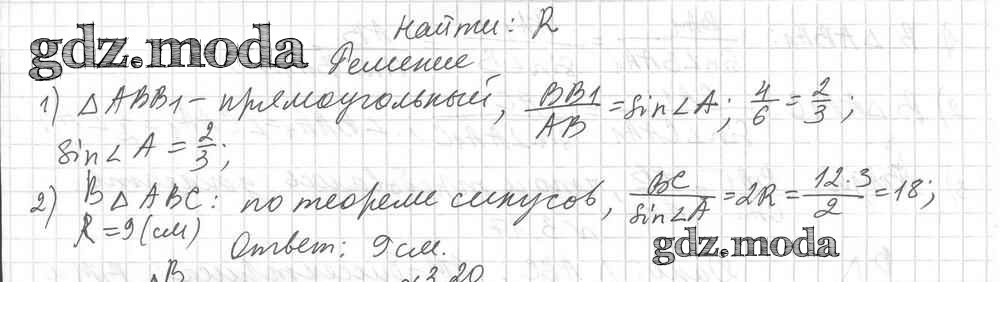 Найти: R
gdz.moda
Решение
1) △ABB1 - прямоугольный, BB1/AB = sin∠A; 4/6 = 2/3;
sin∠A = 2/3;
2) В △ABC: по теореме синусов, BC/sin∠A = 2R = 12·3/2 = 18;
R = 9 (см)
Ответ: 9 см.
gdz.moda